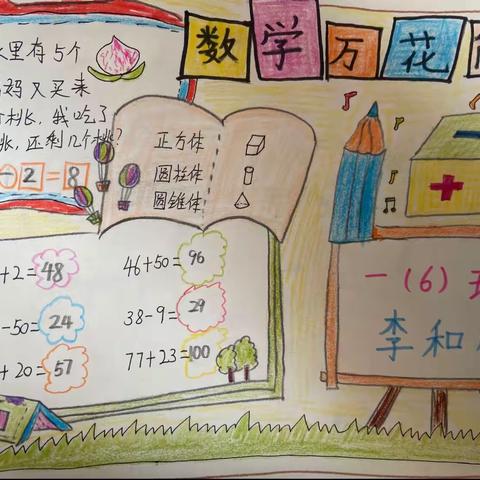 数学万花
里有5个
妈又买来
个桃,我吃了
桃,还剩几个桃?
-2=8
正方体
圆柱体
圆锥体
+2=48
46+50=96
-50=24
38-9=29
+20=57
77+23=100
一(6)
李和